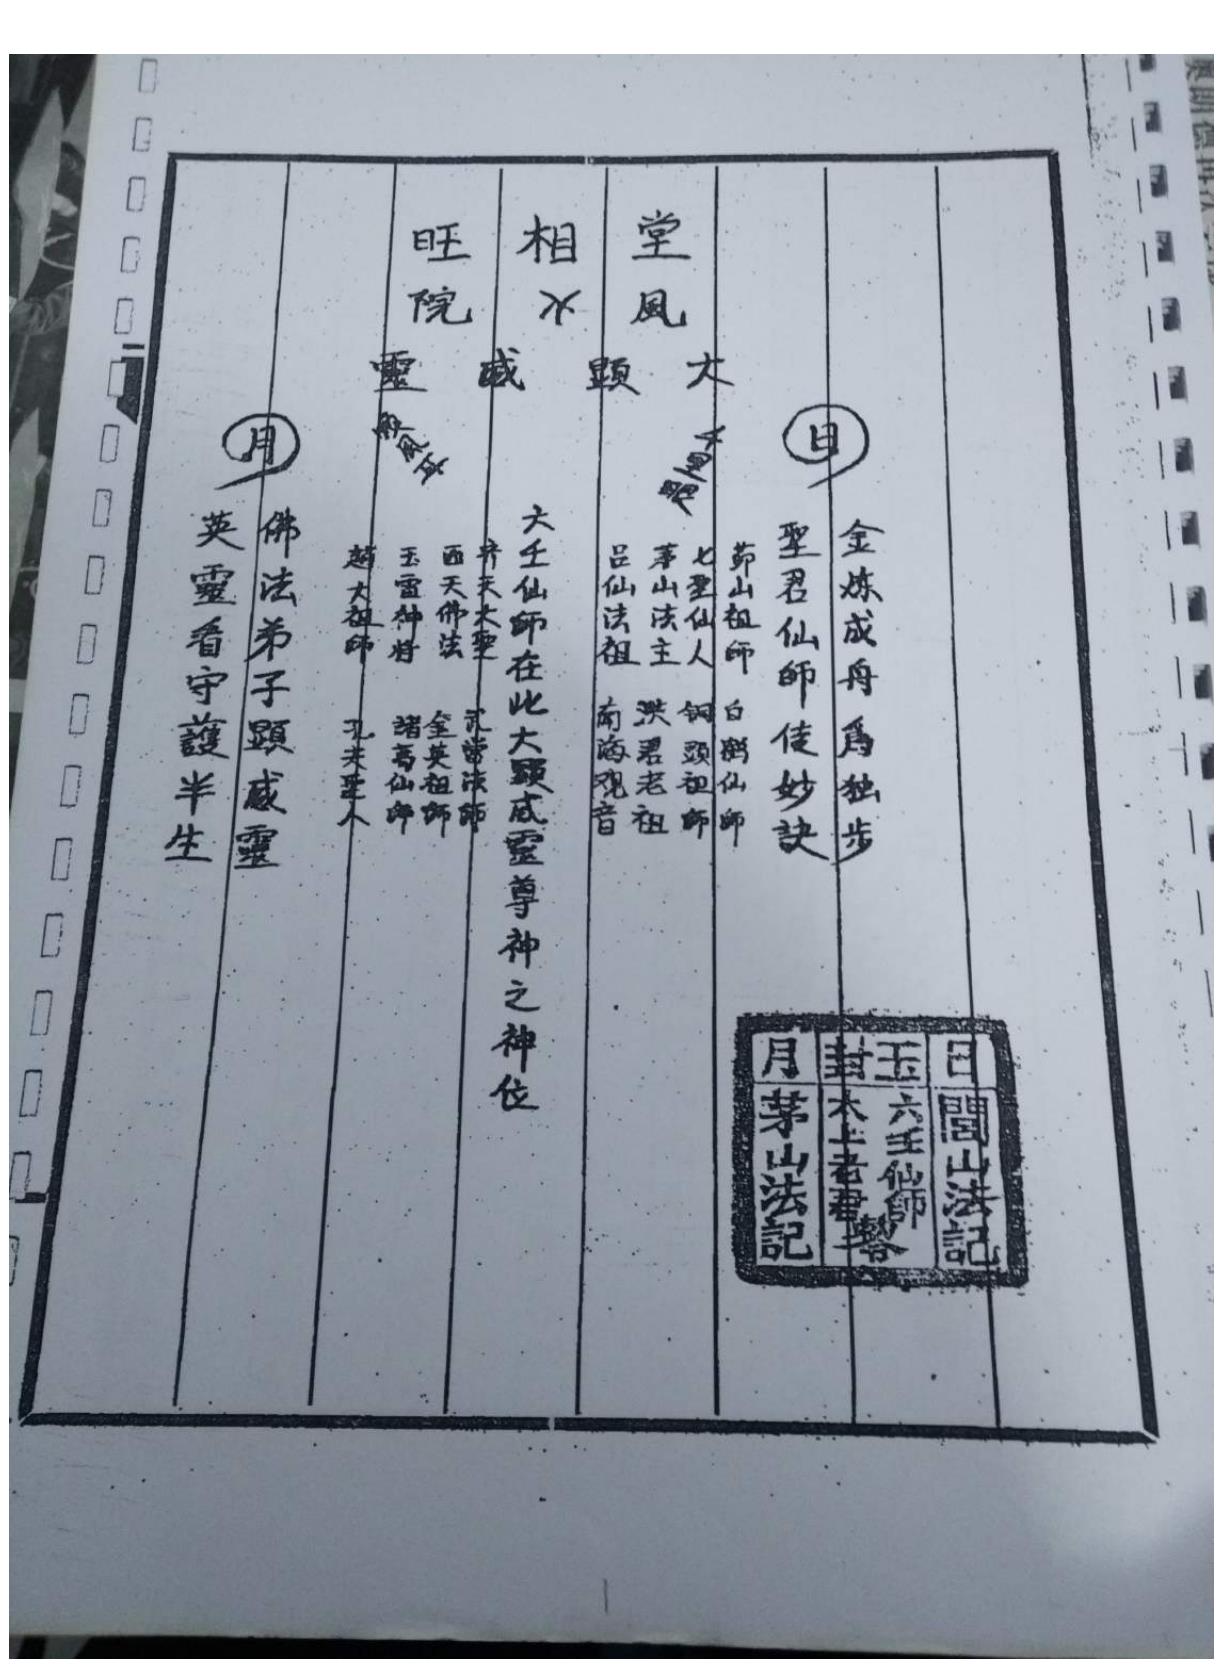 堂相旺
風水院
大顯威靈
日
月
金炼成丹為独步
聖君仙師佳妙訣
茆山祖師 白鹤仙師
七聖仙人 铜頭祖師
茅山法主 洪君老祖
吕仙法祖 南海观音
六壬仙師在此大顕威靈尊神之神位
齐天大聖 武當法師
西天佛法 金英祖師
玉雷神将 諸葛仙師
趙大祖師 孔夫聖人
佛法弟子顯威靈
英靈看守護半生
日玉封月
閭山法記
六壬仙師
太上老君
茅山法記